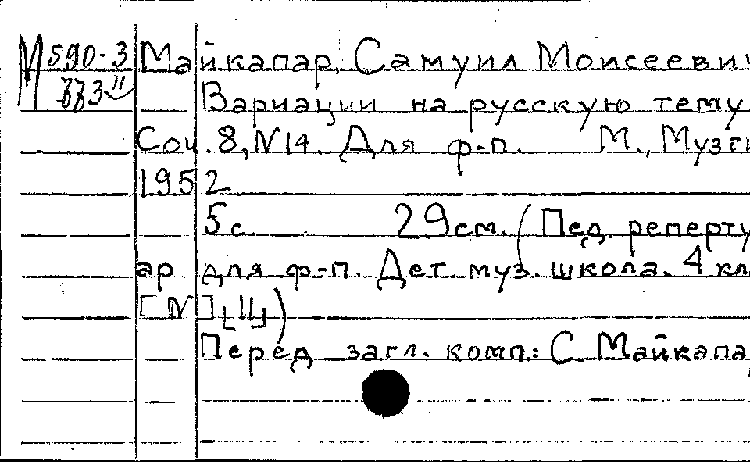 М 590-3 Майкапар, Самуил Моисеевич
Вариации на русскую тему
Соч. 8, N14. Для ф-п. М., Музги
1952
5 с. 29 см. (Пед. реперту
ар для ф-п. Дет. муз. школа. 4 кл.
[N]
Перед загл. комп.: С. Майкапар